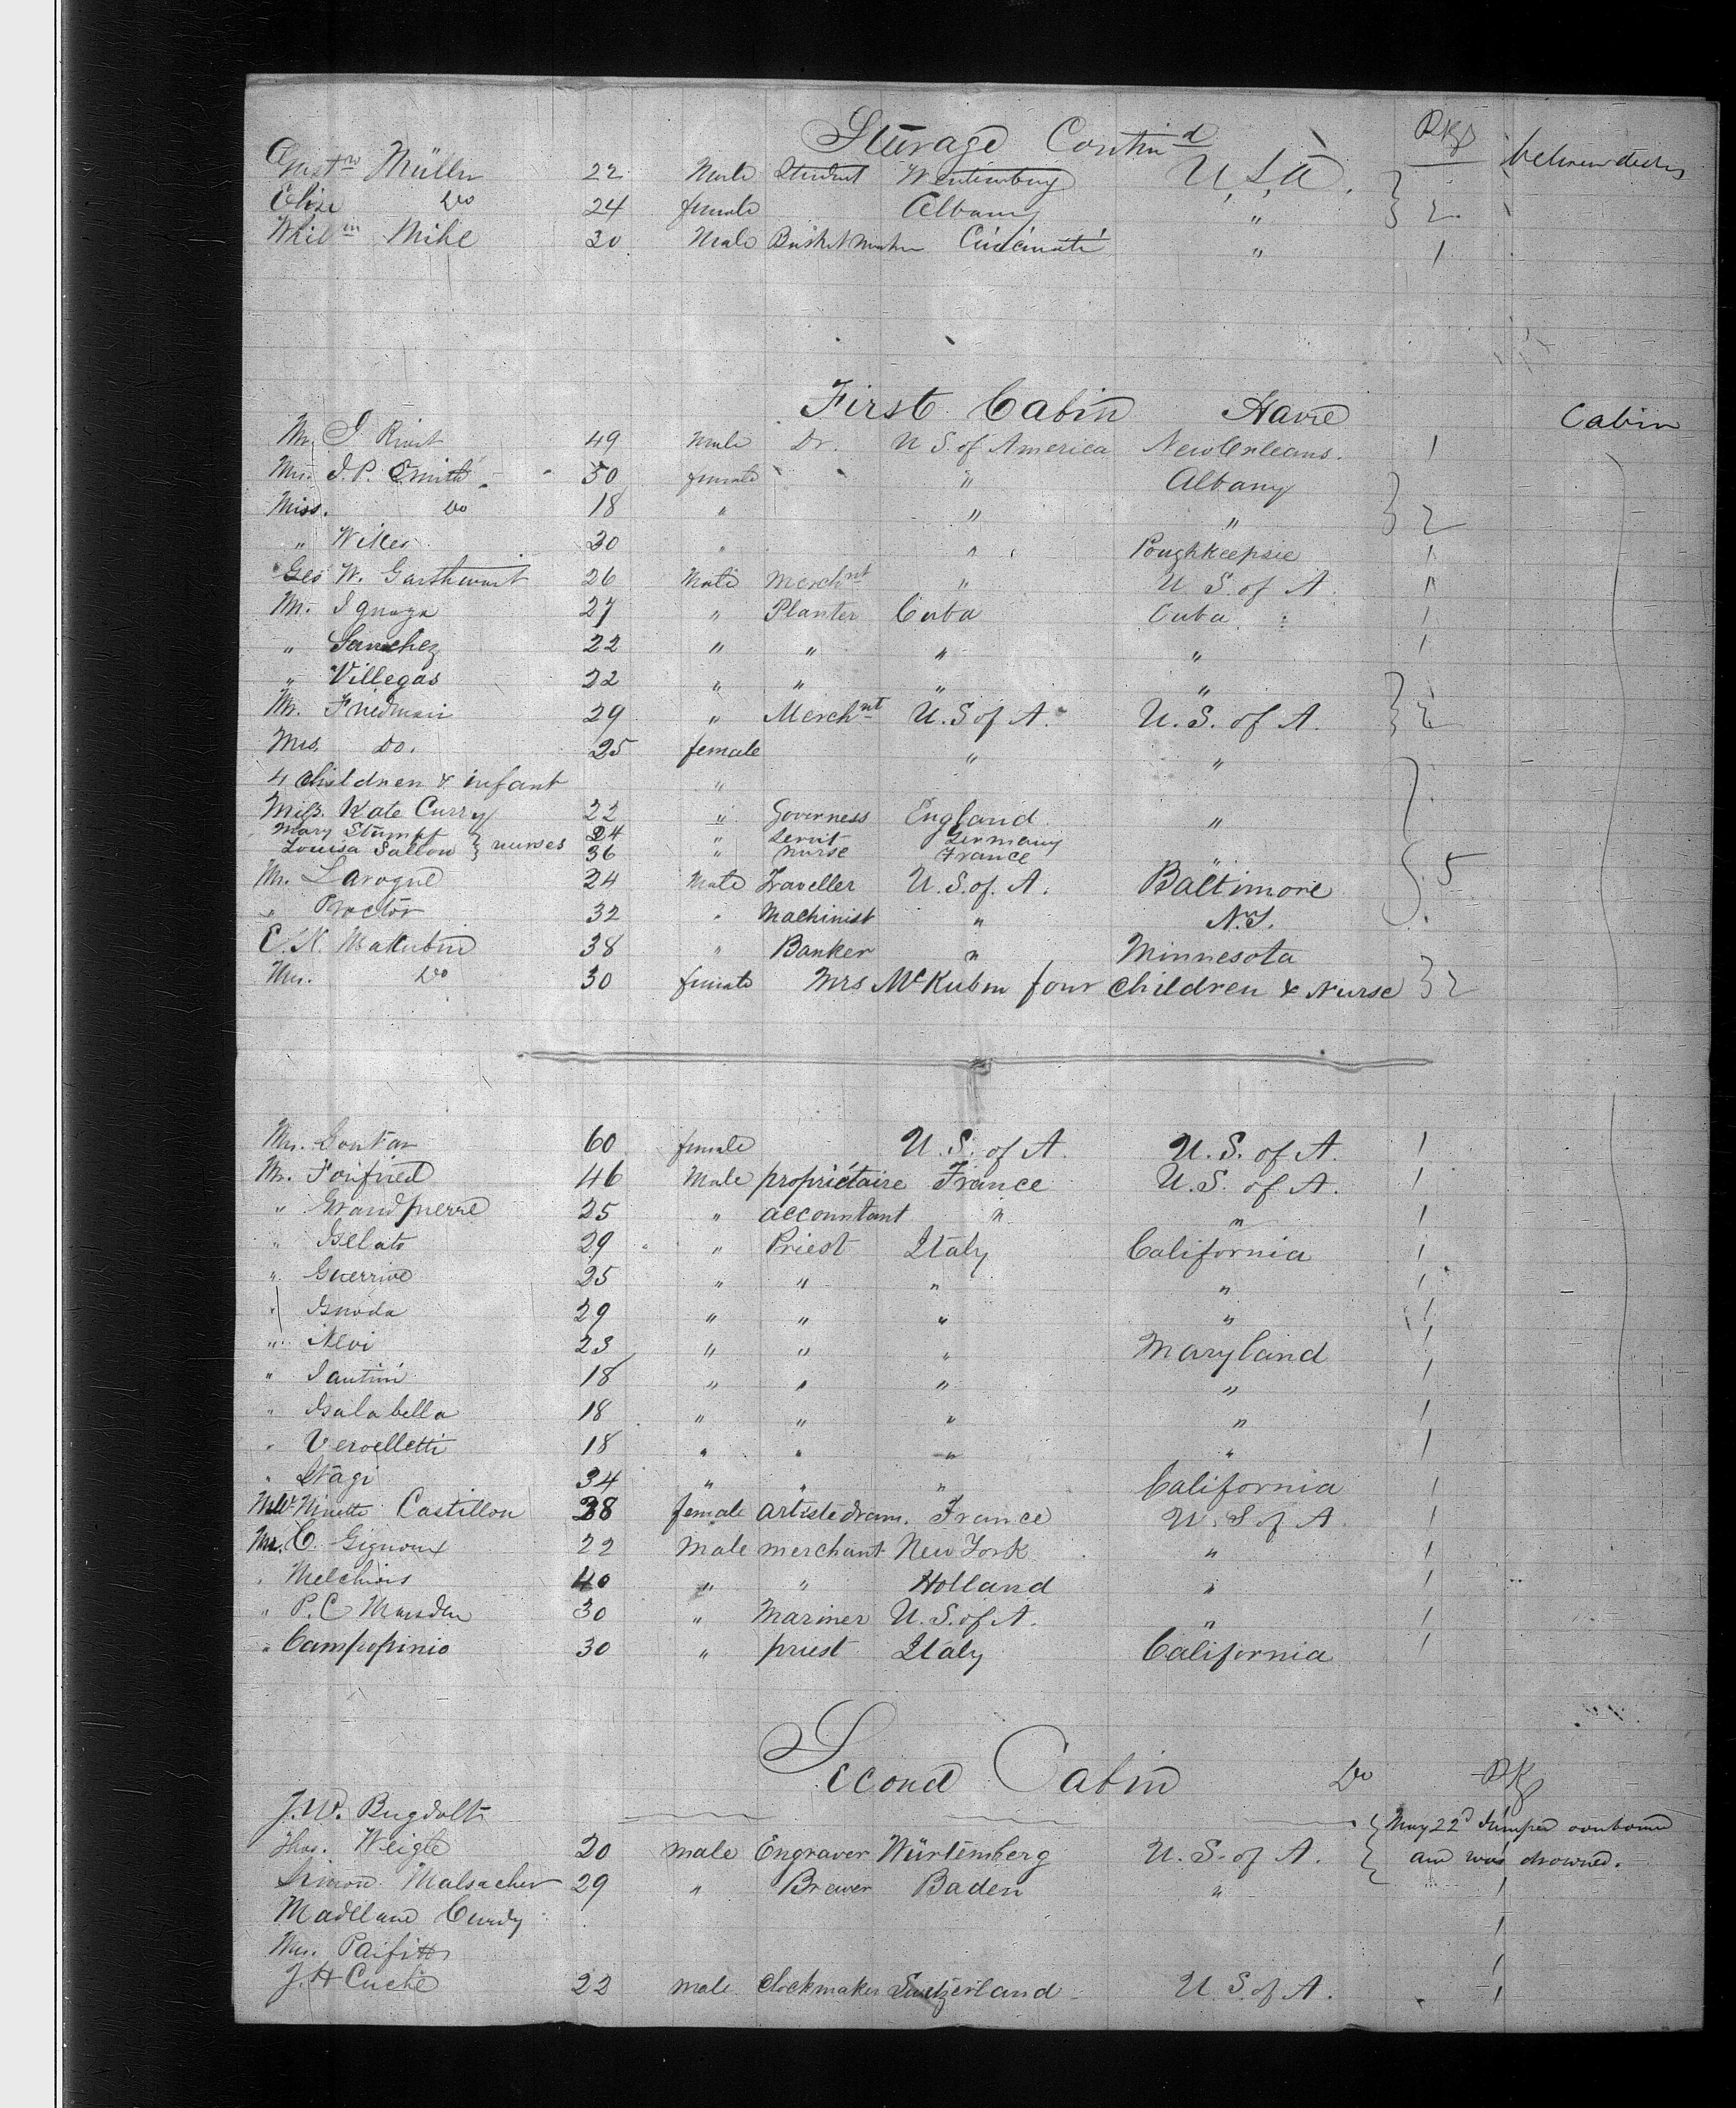 Steerage Contin^d Pkgs
Gust^v Müller 22 Male Student Wurtemburg U.S.A. between decks
Elise Do 24 female Albany " 2
Whilm Mihl 30 Male Basket maker Cincinnati " 1
First Cabin Havre Cabin
Mr. J Rivet 49 Male Dr. U S. of America New Orleans. 1
Mrs. J. P. Smith 50 female " Albany
Miss. Do 18 " " " 2
" Wilkes 30 " " Poughkeepsie 1
Geo W. Garthwait 26 Male Merch^nt " U S. of A. "
Mr. Ignaga 27 " Planter Cuba Cuba 1
" Sanchez 22 " " " " 1
" Villegas 22 " " " "
Mr. Friedman 29 " Merch^nt U. S of A. U. S. of A. 2
Mrs Do. 25 female " "
4 Children & infant "
Miss. Kate Curry 22 " Governess England "
Mary Stumpf 24 " Servt Germany
Louisa Sallow } nurses 36 " nurse France "
Mr. Laroque 24 Male Traveller U. S. of. A. Baltimore 5
" Proctor 32 " Machinist " N.Y.
E. K. Makubin 38 " Banker " Minnesota
Mrs. Do 30 female Mrs McKubin four Children & Nurse 2
Mrs. 60 female U. S. of A. U. S. of A. 1
Mr. Fonfried 46 Male propriétaire France U. S. of A. 1
" Grandpierre 25 " accountant " " 1
" Gelato 29 " Priest Italy California 1
" Guerrive 25 " " " " 1
" Gnoda 29 " " " " 1
" Nevi 23 " " " Maryland 1
" Santini 18 " " " " 1
" Galabella 18 " " " " 1
" Veroelletti 18 " " " " 1
" Stagi 34 " " " California 1
Mlle Ninette Castillon 38 female artiste dram. France U. S of A 1
Mr. C. Gignoux 22 Male merchant New York " 1
" Melchiors 40 " " Holland " 1
" P. C Marsden 30 " Mariner U. S. of A. " 1
" Campopinio 30 " priest Italy California 1
Second Cabin Do Pkg
J. W. Bugdolt May 22^d Jumped overboard
Thos. Weigle 20 male Engraver Würtemberg U. S. of A. and was drowned.
Simon Malsacher 29 " Brewer Baden " 1
Madelane Curdy 1
Mrs. Paifitt 1
J. H Cuche 22 male Clockmaker Switzerland U S. of A. 1